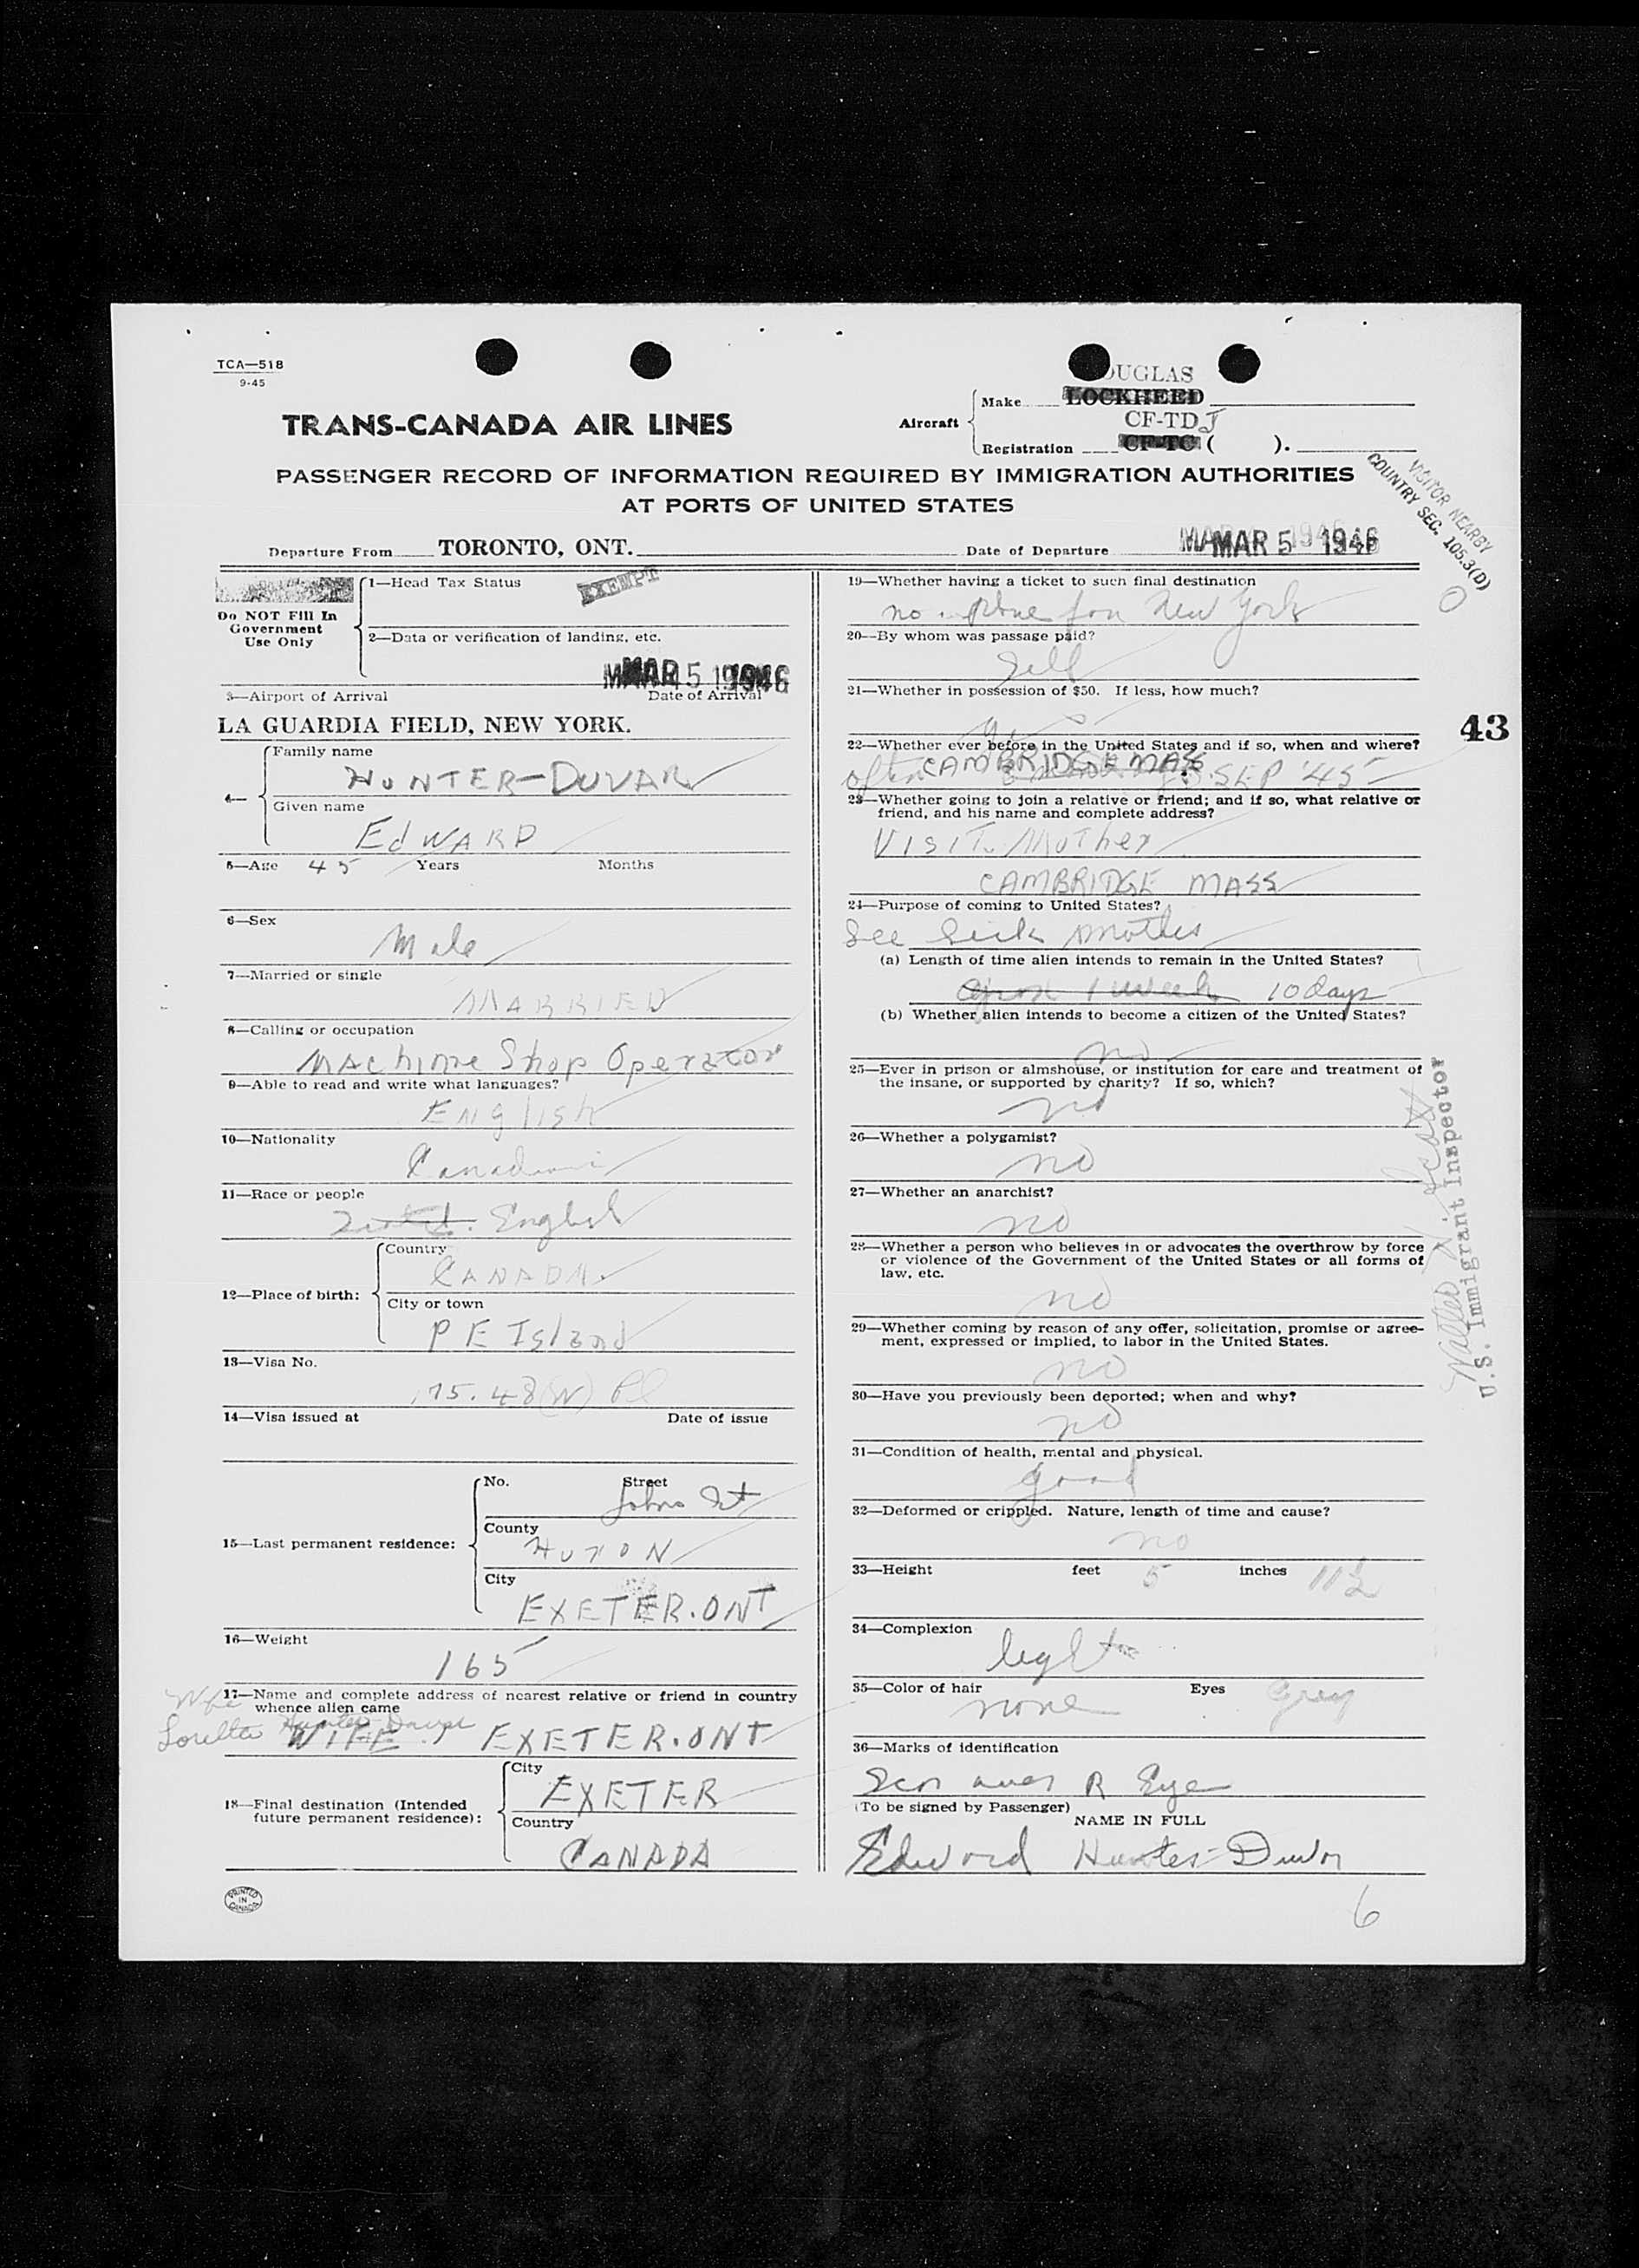 TCA—518
9-45
DOUGLAS
Make LOCKHEED
TRANS-CANADA AIR LINES
Aircraft
CF-TDJ
Registration CF-TC ( ).
PASSENGER RECORD OF INFORMATION REQUIRED BY IMMIGRATION AUTHORITIES
AT PORTS OF UNITED STATES
VISITOR NEARBY
COUNTRY SEC. 105.3(D)
Departure From TORONTO, ONT. Date of Departure MAR 5 1946
Do NOT Fill In
Government
Use Only
1—Head Tax Status EXEMPT
2—Data or verification of landing, etc.
MAR 5 1946
3—Airport of Arrival Date of Arrival
LA GUARDIA FIELD, NEW YORK.
4—
Family name
HUNTER-DUVAR
Given name
EdWARD
5—Age 45 Years Months
6—Sex
Male
7—Married or single
MARRIED
8—Calling or occupation
MAchine Shop Operator
9—Able to read and write what languages?
ENglish
10—Nationality
Canadian
11—Race or people
English
12—Place of birth:
Country
CANADA
City or town
P E Island
13—Visa No.
175.43
14—Visa issued at Date of issue
15—Last permanent residence:
No. Street
Johns St
County
HURON
City
EXETER.ONT
16—Weight
165
17—Name and complete address of nearest relative or friend in country
whence alien came
Wife
Loretta Hunter Duvar
WIFE EXETER.ONT
18—Final destination (Intended
future permanent residence):
City
EXETER
Country
CANADA
PRINTED
IN
CANADA
19—Whether having a ticket to such final destination
no New York
20—By whom was passage paid?
Self
21—Whether in possession of $50. If less, how much?
yes
43
22—Whether ever before in the United States and if so, when and where?
often CAMBRIDGE MASS. SEP '45
23—Whether going to join a relative or friend; and if so, what relative or
friend, and his name and complete address?
VISIT. Mother
CAMBRIDGE MASS
24—Purpose of coming to United States?
See Sick mother
(a) Length of time alien intends to remain in the United States?
1 week 10 days
(b) Whether alien intends to become a citizen of the United States?
no
25—Ever in prison or almshouse, or institution for care and treatment of
the insane, or supported by charity? If so, which?
no
26—Whether a polygamist?
no
27—Whether an anarchist?
no
28—Whether a person who believes in or advocates the overthrow by force
or violence of the Government of the United States or all forms of
law, etc.
no
29—Whether coming by reason of any offer, solicitation, promise or agree-
ment, expressed or implied, to labor in the United States.
no
30—Have you previously been deported; when and why?
no
31—Condition of health, mental and physical.
good
32—Deformed or crippled. Nature, length of time and cause?
no
33—Height feet 5 inches 11½
34—Complexion
light
35—Color of hair Eyes
none Grey
36—Marks of identification
Scar over R Eye
(To be signed by Passenger)
NAME IN FULL
Edward Hunter-Duvar
6
U.S. Immigrant Inspector